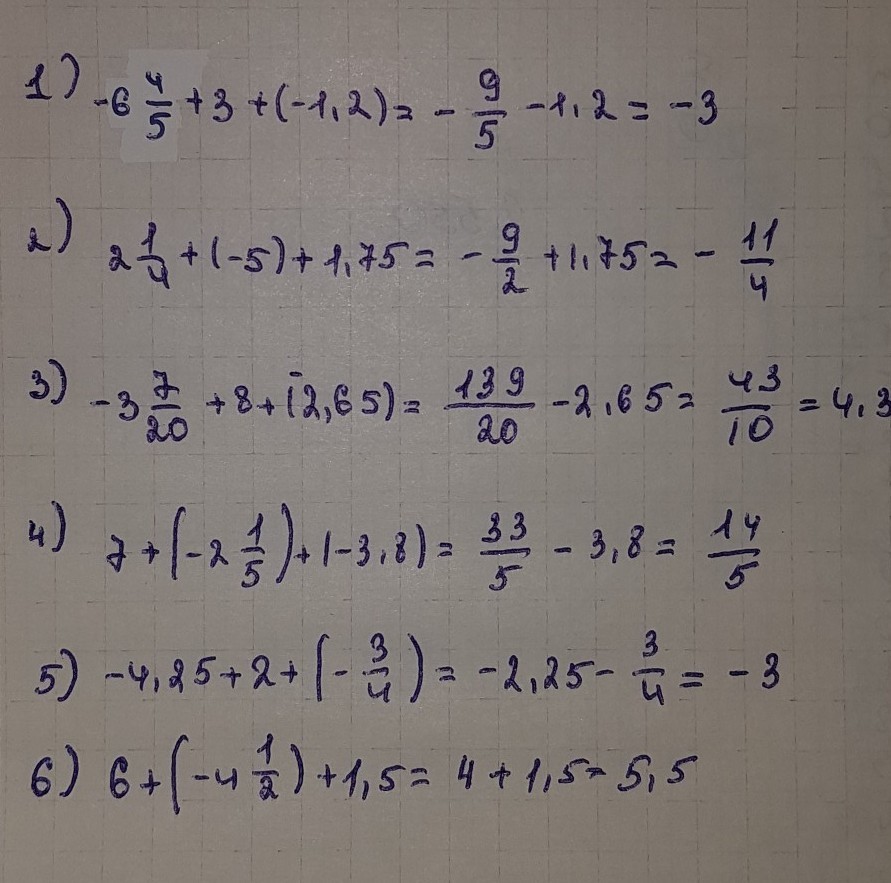 1) -6 4/5 + 3 + (-1,2) = - 9/5 - 1,2 = -3
2) 2 1/4 + (-5) + 1,75 = - 9/2 + 1,75 = - 11/4
3) -3 7/20 + 8 + (-2,65) = 139/20 - 2,65 = 43/10 = 4,3
4) 7 + (-2 1/5) + (-3,8) = 33/5 - 3,8 = 14/5
5) -4,25 + 2 + (- 3/4) = -2,25 - 3/4 = -3
6) 6 + (-4 1/2) + 1,5 = 4 + 1,5 = 5,5